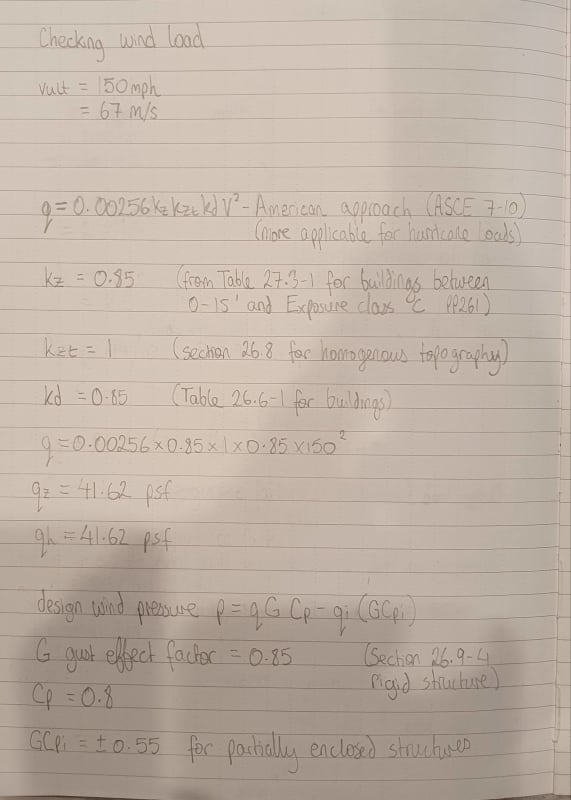 Checking wind load
vult = 150mph
= 67 m/s
q = 0.00256 kz kzt kd V² - American approach (ASCE 7-10)
(more applicable for hurricane loads)
kz = 0.85 (from Table 27.3-1 for buildings between
0-15' and Exposure class C pp261)
kzt = 1 (section 26.8 for homogenous topography)
kd = 0.85 (Table 26.6-1 for buildings)
q = 0.00256 × 0.85 × 1 × 0.85 × 150²
qz = 41.62 psf
qh = 41.62 psf
design wind pressure p = q G Cp - qi (GCpi)
G gust effect factor = 0.85 (Section 26.9-4
rigid structure)
Cp = 0.8
GCpi = ± 0.55 for partially enclosed structures